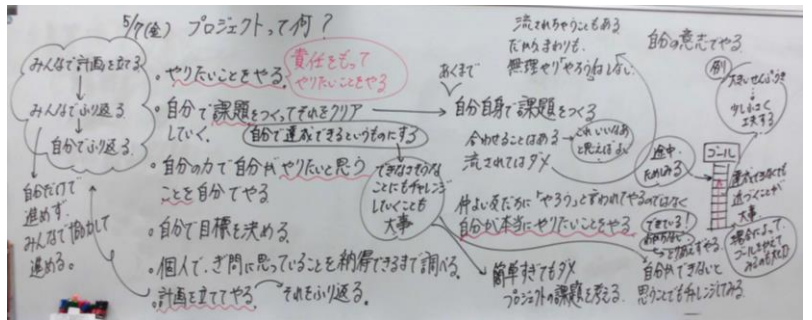 5/7(金) プロジェクトって何？
みんなで計画を立てる
みんなでふり返る
自分でふり返る
自分だけで
進めず
みんなで協力して
進める。
・やりたいことをやる。
責任をもって
やりたいことをやる
・自分で課題をつくってそれをクリア
していく。
自分で達成できるというものにする
・自分の力で自分がやりたいと思う
ことを自分でやる
・自分で目標を決める
・個人で、ぎ問に思っていることを納得できるまで調べる。
・計画を立ててやる
それをふり返る。
できなさそうな
ことにもチャレンジ
していくことも
大事
あくまで
自分自身で課題をつくる
合わせることはある
流されてはダメ
これいいなあ
と思えばよい
流されちゃうこともある
だから、まわりも、
無理やり「やろう」はしない
仲よい友だちに「やろう」と言われてやるのではなく
自分が本当にやりたいことをやる
簡単すぎてもダメ
プロジェクトの課題を考える
自分ができないと
思うことでもチャレンジしてみる
自分の意志でやる
例
大きいせんぷうき
少し小さく
工夫する
途中
ためしみる
ゴール
達成できなくても
近づくことが
大事
できている！
場合によって、
ゴールをかえて
みるのも大切